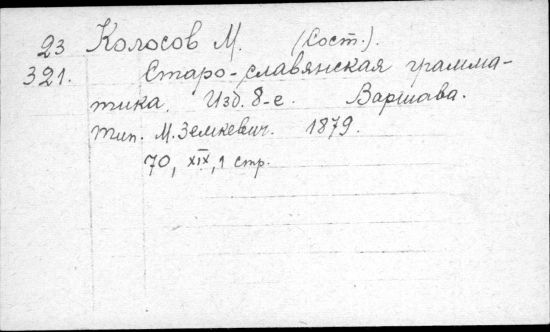 23 Колосов М. (Сост.).
321. Старо-славянская грамма-
тика. Изд. 8-е. Варшава.
Тип. М. Земкевич. 1879.
70, XIX, 1 стр.